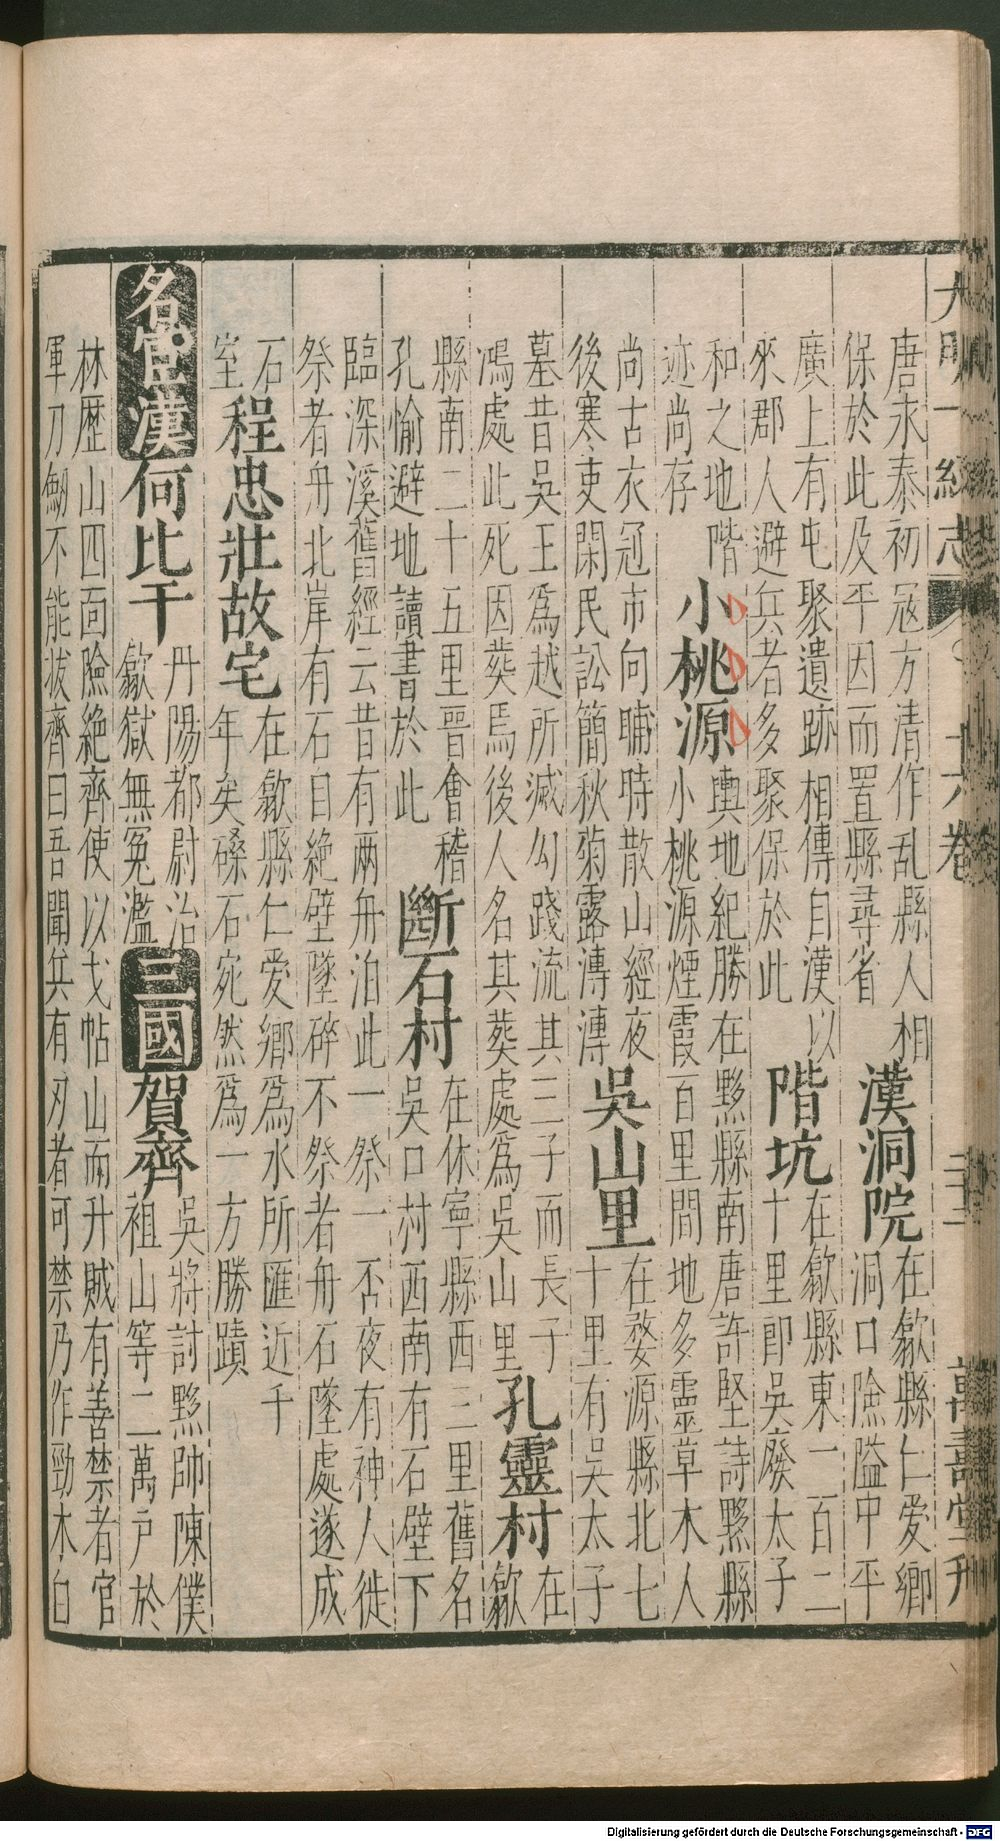 大明一統志 十六卷 萬壽堂刊
唐永泰初冦方清作乱縣人相
保於此及平因而置縣尋省
漢洞院
在歙縣仁愛鄉
洞口險隘中平
廣上有屯聚遺跡相傳自漢以
來郡人避兵者多聚保於此
階坑
在歙縣東一百二
十里即吳廢太子
和之地階
迹尚存
小桃源
輿地紀勝在黟縣南唐許堅詩黟縣
小桃源煙霞百里間地多靈草木人
尚古衣冠市向晡時散山經夜
後寒吏閑民訟簡秋菊露漙漙
吳山里
在婺源縣北七
十里有吳太子
墓昔吳王爲越所滅勾踐流其三子而長子
鴻處此死因葬焉後人名其葬處爲吳山里
孔靈村
在
歙
縣南二十五里晉會稽
孔愉避地讀書於此
斷石村
在休寧縣西三里舊名
吳口村西南有石壁下
臨深溪舊經云昔有兩舟泊此一祭一否夜有神人徙
祭者舟北岸有石自絶壁墜碎不祭者舟石墜處遂成
石
室
程忠壯故宅
在歙縣仁愛鄉爲水所匯近千
年矣磉石宛然爲一方勝蹟
名宦漢何比干
丹陽都尉治
歙獄無冤濫
三國賀齊
吳將討黟帥陳僕
祖山等二萬户於
林歷山四面險絶齊使以戈帖山而升賊有善禁者官
軍刀劒不能拔齊曰吾聞兵有刃者可禁乃作勁木白
Digitalisierung gefördert durch die Deutsche Forschungsgemeinschaft - DFG